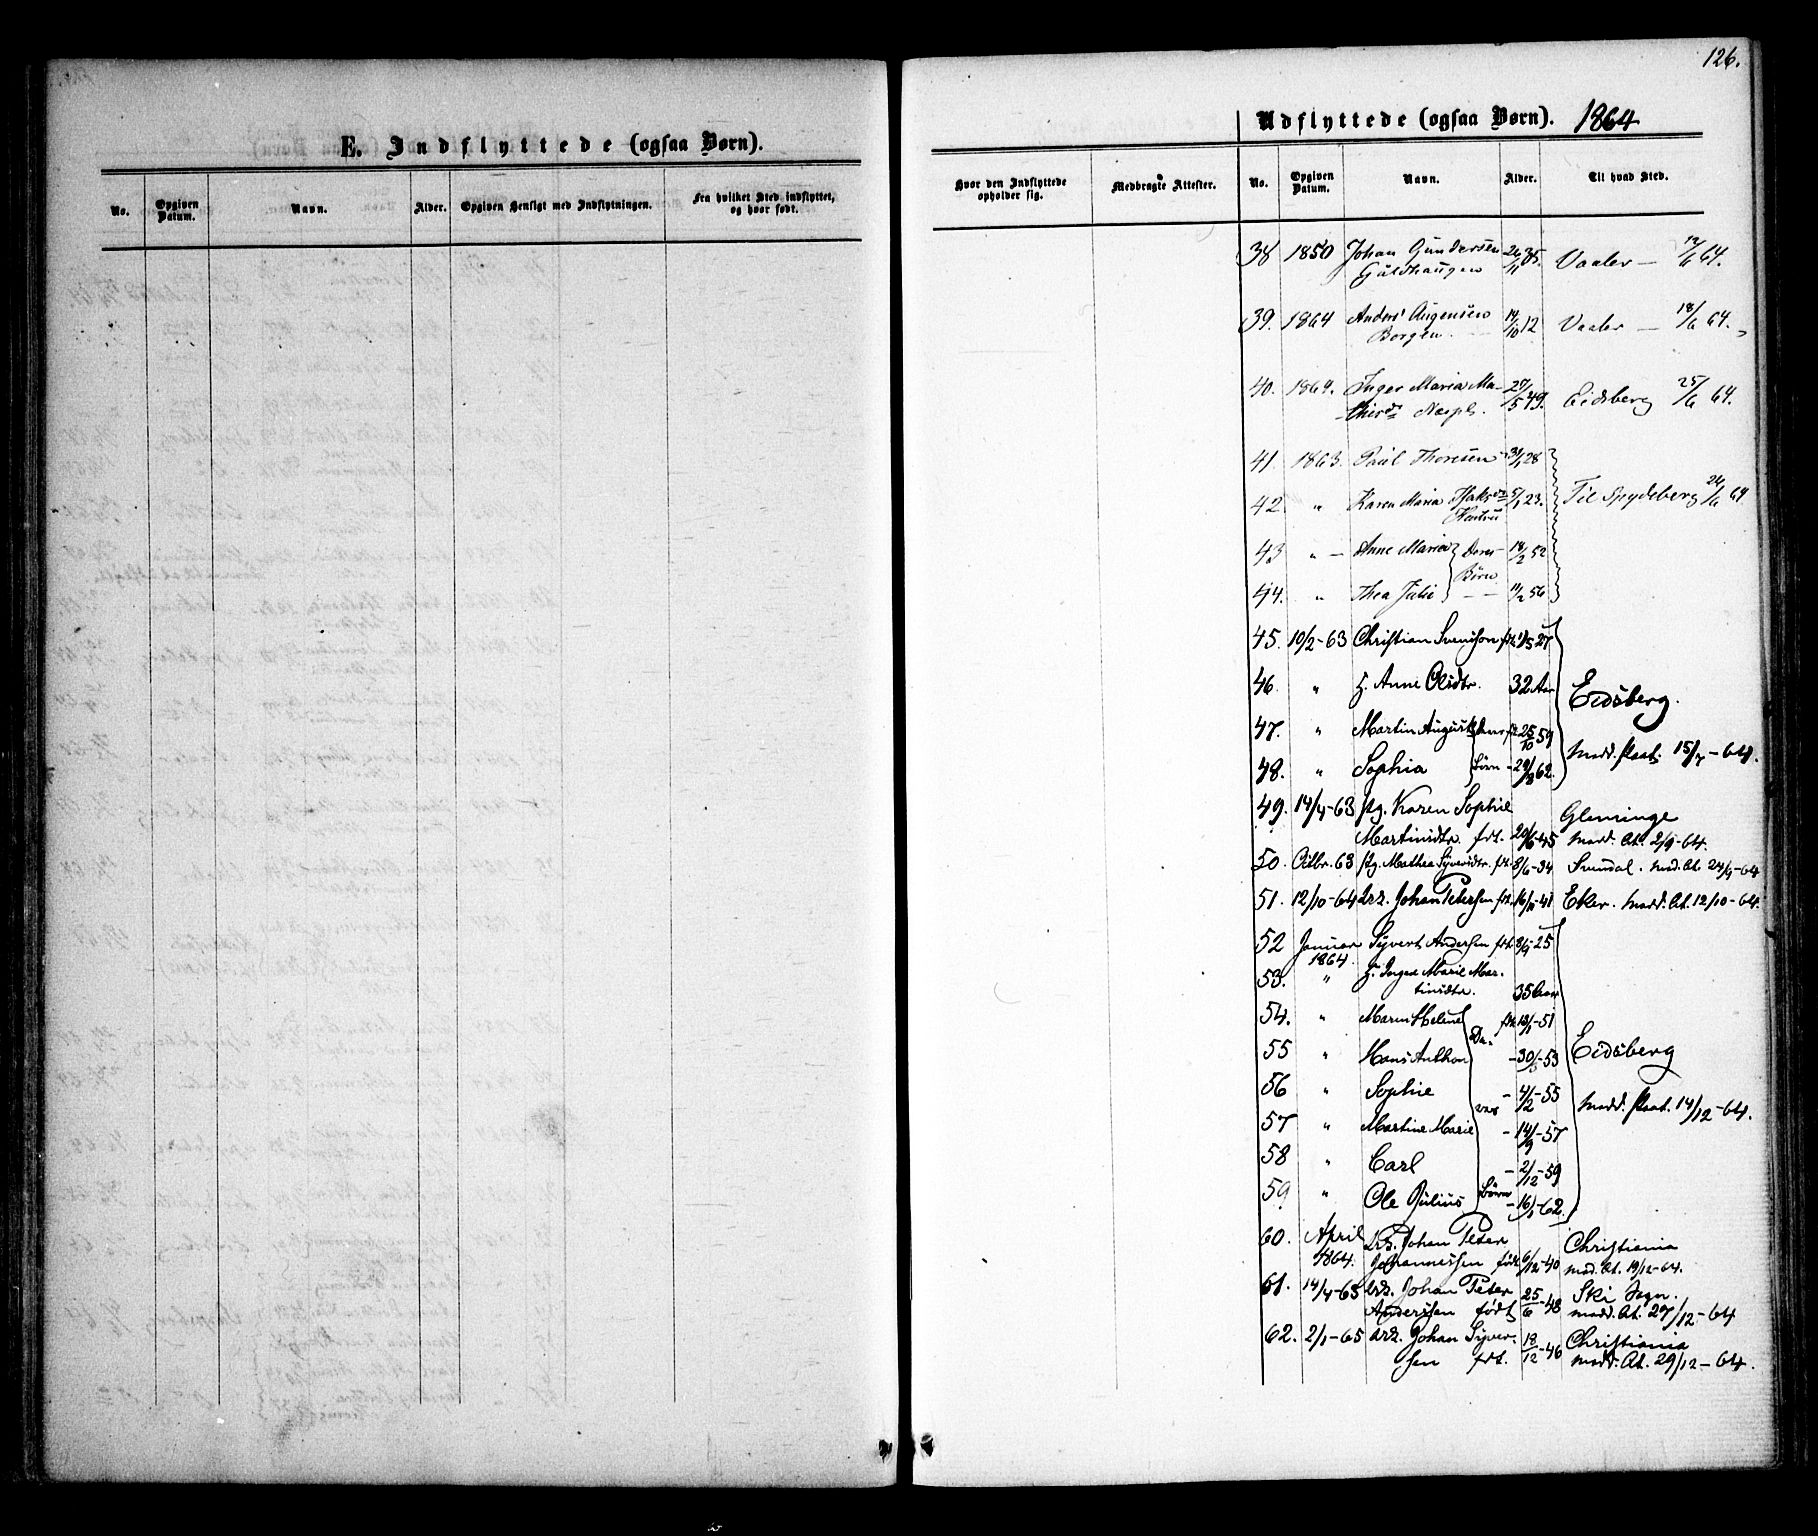 126.
E. Indflyttede (ogsaa Børn).
No. Opgiven Datum. Navn. Alder. Opgiven Hensigt med Indflytningen. Fra hvilket Sted indflyttet, og hvor født.
Udflyttede (ogsaa Børn). 1864
Hvor den Indflyttede opholder sig. Medbragte Attester. No. Opgiven Datum. Navn. Alder. Til hvad Sted.
38 1850 Johan Gundersen 26/11 35. Vaaler — 12/6 64.
39. 1864 Anders 14/10 12 Vaaler — 18/6 64.
Borgen.
40. 1864. Inger Maria Ma- 27/5 49. Eidsberg 25/6 64.
41. 1863. Paul Thoresen 28
42 " Karen Maria 5/1 23. Til Spydeberg 26/6 64
43 " — Anne Maria Deres 18/2 52
Børn
44. " Thea Julie — — 11/2 56
45. 10/2-63 Christian Svendsen 27
46. " H. Anne Olsdtr. 32 Aar Eidsberg.
47. " Martin August Deres 25/10 59
48. " Sophia Børn - 62. Medd. Attest. 15/7-64.
49. 14/4-63 Pg. Karen Sophie Glemminge
Martinsdtr. fdt. 20/6-45 Medd. At. 2/9-64.
50. Octbr. 63 Pg. Mathea Syversdtr. fdt. 8/6-34 Svindal. Med. At. 24/9-64
51. 12/10-64 Johan Petersen fdt. 16/11-41 Eker. Medd. At. 12/10-64.
52 Januar Syvert Andersen fdt. 8/9-25
1864.
53. " H. Inger Marie Mar-
tinsdtr. 35 Aar
54. " Maren Helene fdt. 18/1-51
55 " Hans Anthon - 30/5-53 Eidsberg
56 " Sophie - 4/2-55 Medd. Attest. 14/12-64.
57 " Martine Marie - 14/9-57
58 " Carl - 2/12-59
59 " Ole Julius Børn - 16/1-62.
60. April Johan Peter Christiania
1864. Johannessen født 6/12-40 Med. At. 19/12-64.
61. 14/4-63 Johan Peter 25/6-48 Ski Sogn.
Anderssen født Medd. At. 27/12-64
62. 2/1-65 Johan Syver- 18/12-46 Christiania
sen fdt. Medd. At. 29/12-64.